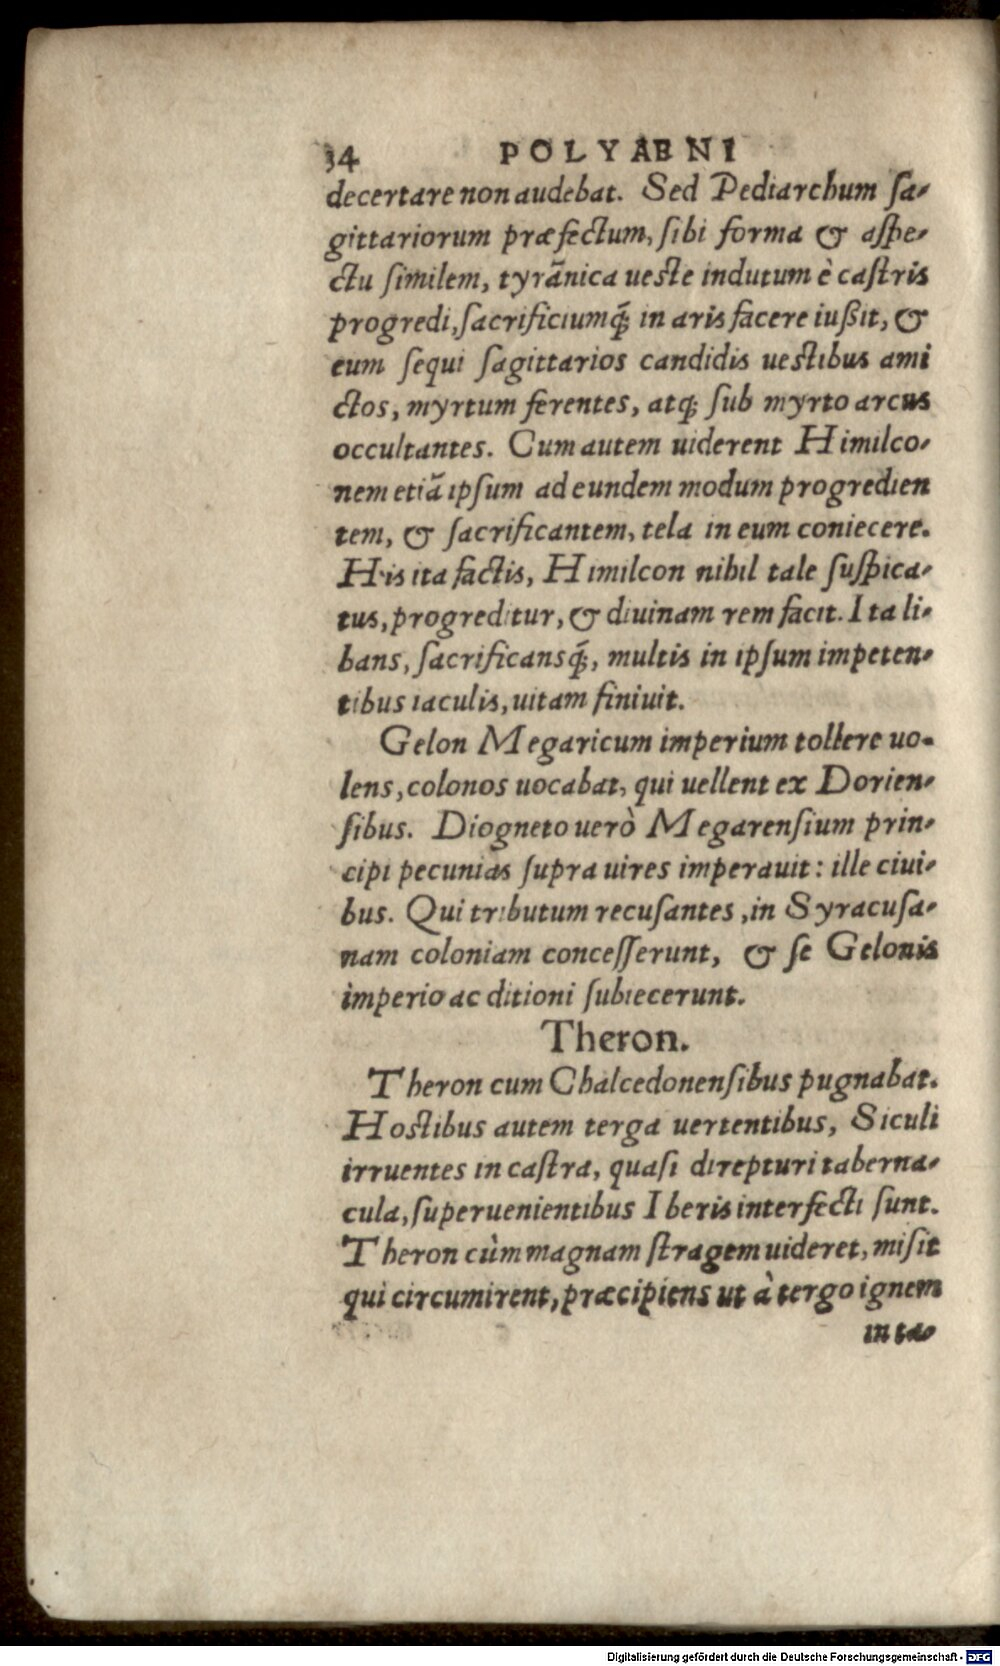 34 POLYAENI
decertare non audebat. Sed Pediarchum ſa-
gittariorum præfectum, ſibi forma & aſpe-
ctu ſimilem, tyrānica ueſte indutum è caſtris
progredi, ſacrificiumq́; in aris facere iußit, &
eum ſequi ſagittarios candidis ueſtibus ami
ctos, myrtum ferentes, atq; ſub myrto arcus
occultantes. Cum autem uiderent Himilco-
nem etiā ipſum ad eundem modum progredien
tem, & ſacrificantem, tela in eum coniecere.
His ita factis, Himilcon nihil tale ſuſpica-
tus, progreditur, & diuinam rem facit. Ita li-
bans, ſacrificansq́;, multis in ipſum impeten-
tibus iaculis, uitam finiuit.
Gelon Megaricum imperium tollere uo-
lens, colonos uocabat, qui uellent ex Dorien-
ſibus. Diogneto uerò Megarenſium prin-
cipi pecunias ſupra uires imperauit: ille ciui-
bus. Qui tributum recuſantes, in Syracuſa-
nam coloniam conceſſerunt, & ſe Gelonis
imperio ac ditioni ſubiecerunt.
Theron.
Theron cum Chalcedonenſibus pugnabat.
Hoſtibus autem terga uertentibus, Siculi
irruentes in caſtra, quaſi direpturi taberna-
cula, ſuperuenientibus Iberis interfecti ſunt.
Theron cùm magnam ſtragem uideret, miſit
qui circumirent, præcipiens ut à tergo ignem
in ta-
Digitalisierung gefördert durch die Deutsche Forschungsgemeinschaft - DFG